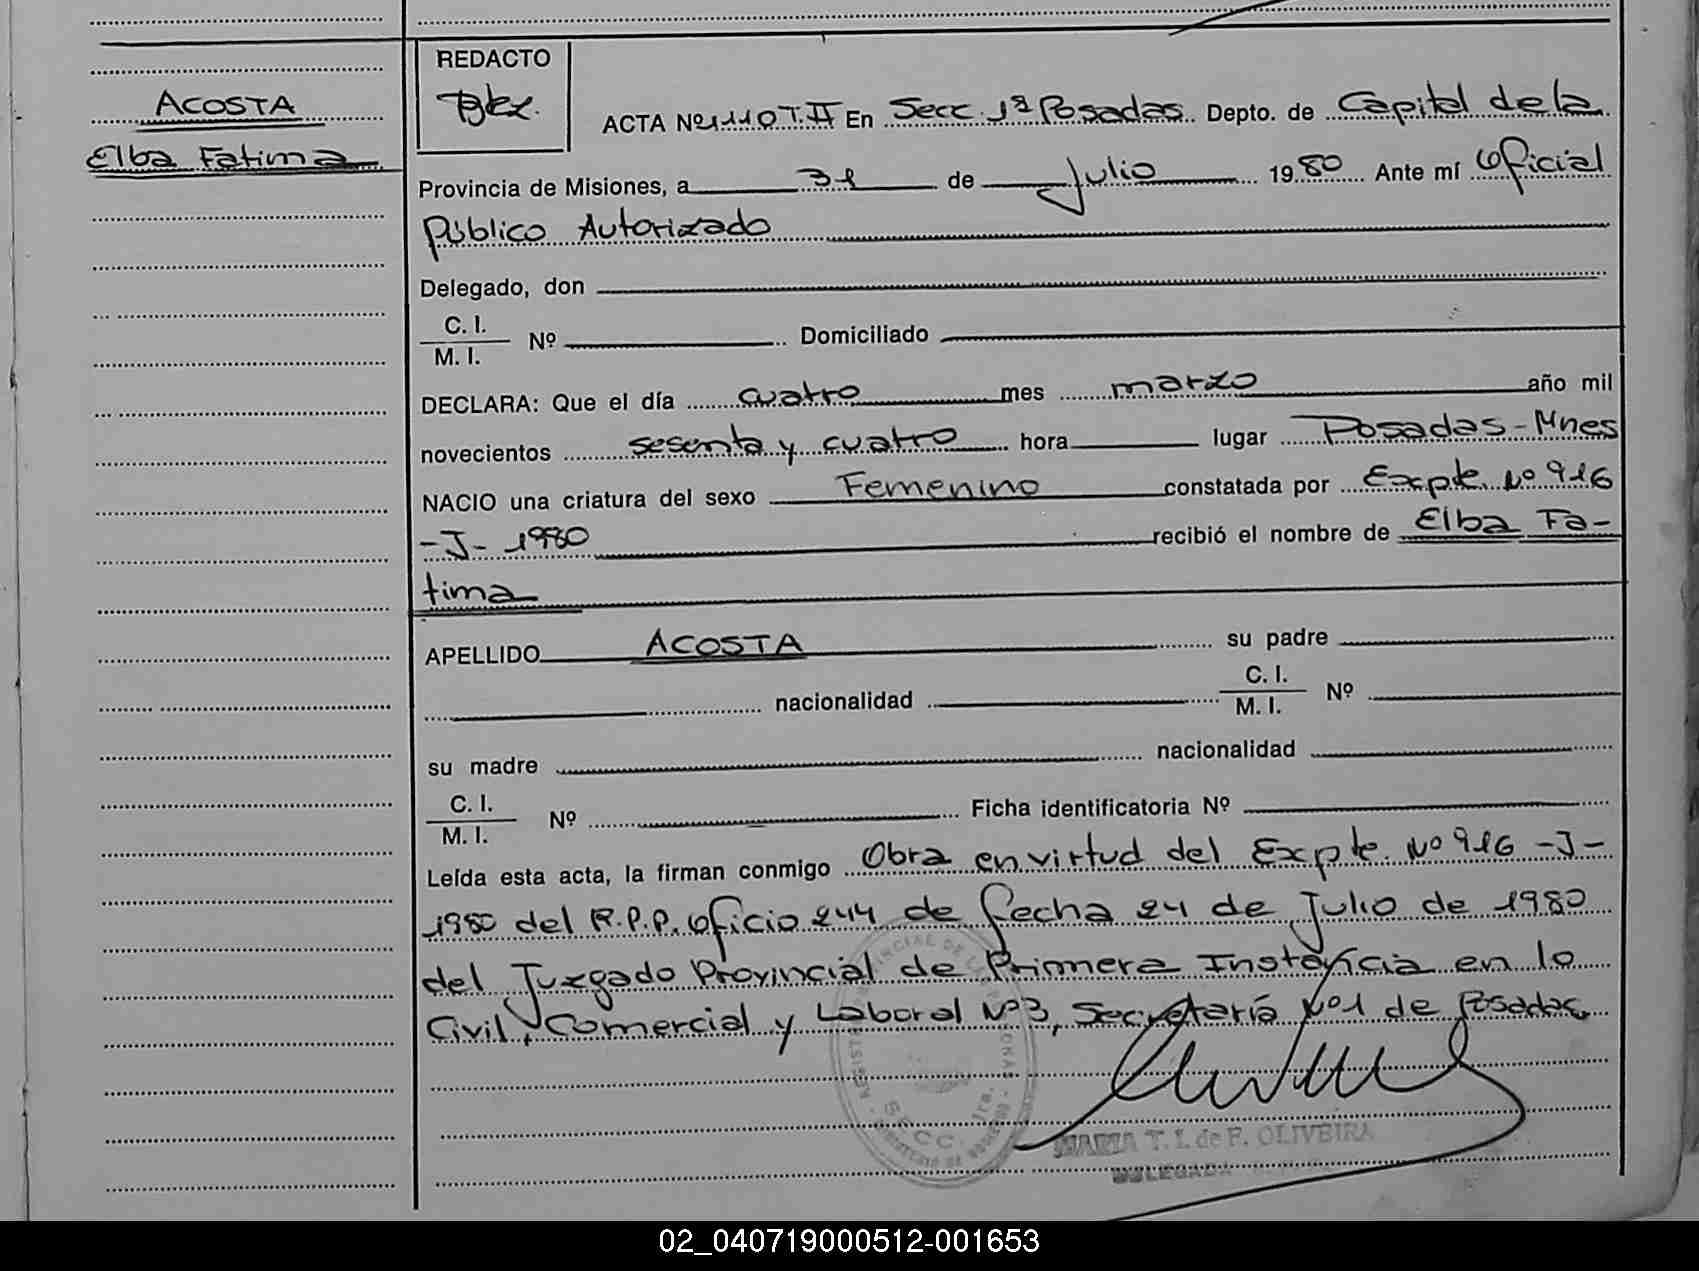 ACOSTA
Elba Fatima
REDACTO
ACTA Nº 1110 T.II En Secc. 1ª Posadas Depto. de Capital de la
Provincia de Misiones, a 31 de Julio 1980 Ante mí Oficial
Público Autorizado
Delegado, don
C. I.
M. I. Nº Domiciliado
DECLARA: Que el día cuatro mes marzo año mil
novecientos sesenta y cuatro hora lugar Posadas - Mnes
NACIO una criatura del sexo Femenino constatada por Expte. Nº 916
-J- 1980 recibió el nombre de Elba Fa-
tima
APELLIDO ACOSTA su padre
nacionalidad C. I.
M. I. Nº
su madre nacionalidad
C. I.
M. I. Nº Ficha identificatoria Nº
Leída esta acta, la firman conmigo Obra en virtud del Expte. Nº 916 -J-
1980 del R.P.P. Oficio 244 de fecha 24 de Julio de 1980
del Juzgado Provincial de Primera Instancia en lo
Civil, Comercial y Laboral Nº3, Secretaría Nº1 de Posadas
SECC. 1ra.
MARIA T. I. de F. OLIVEIRA
DELEGADA
02_040719000512-001653